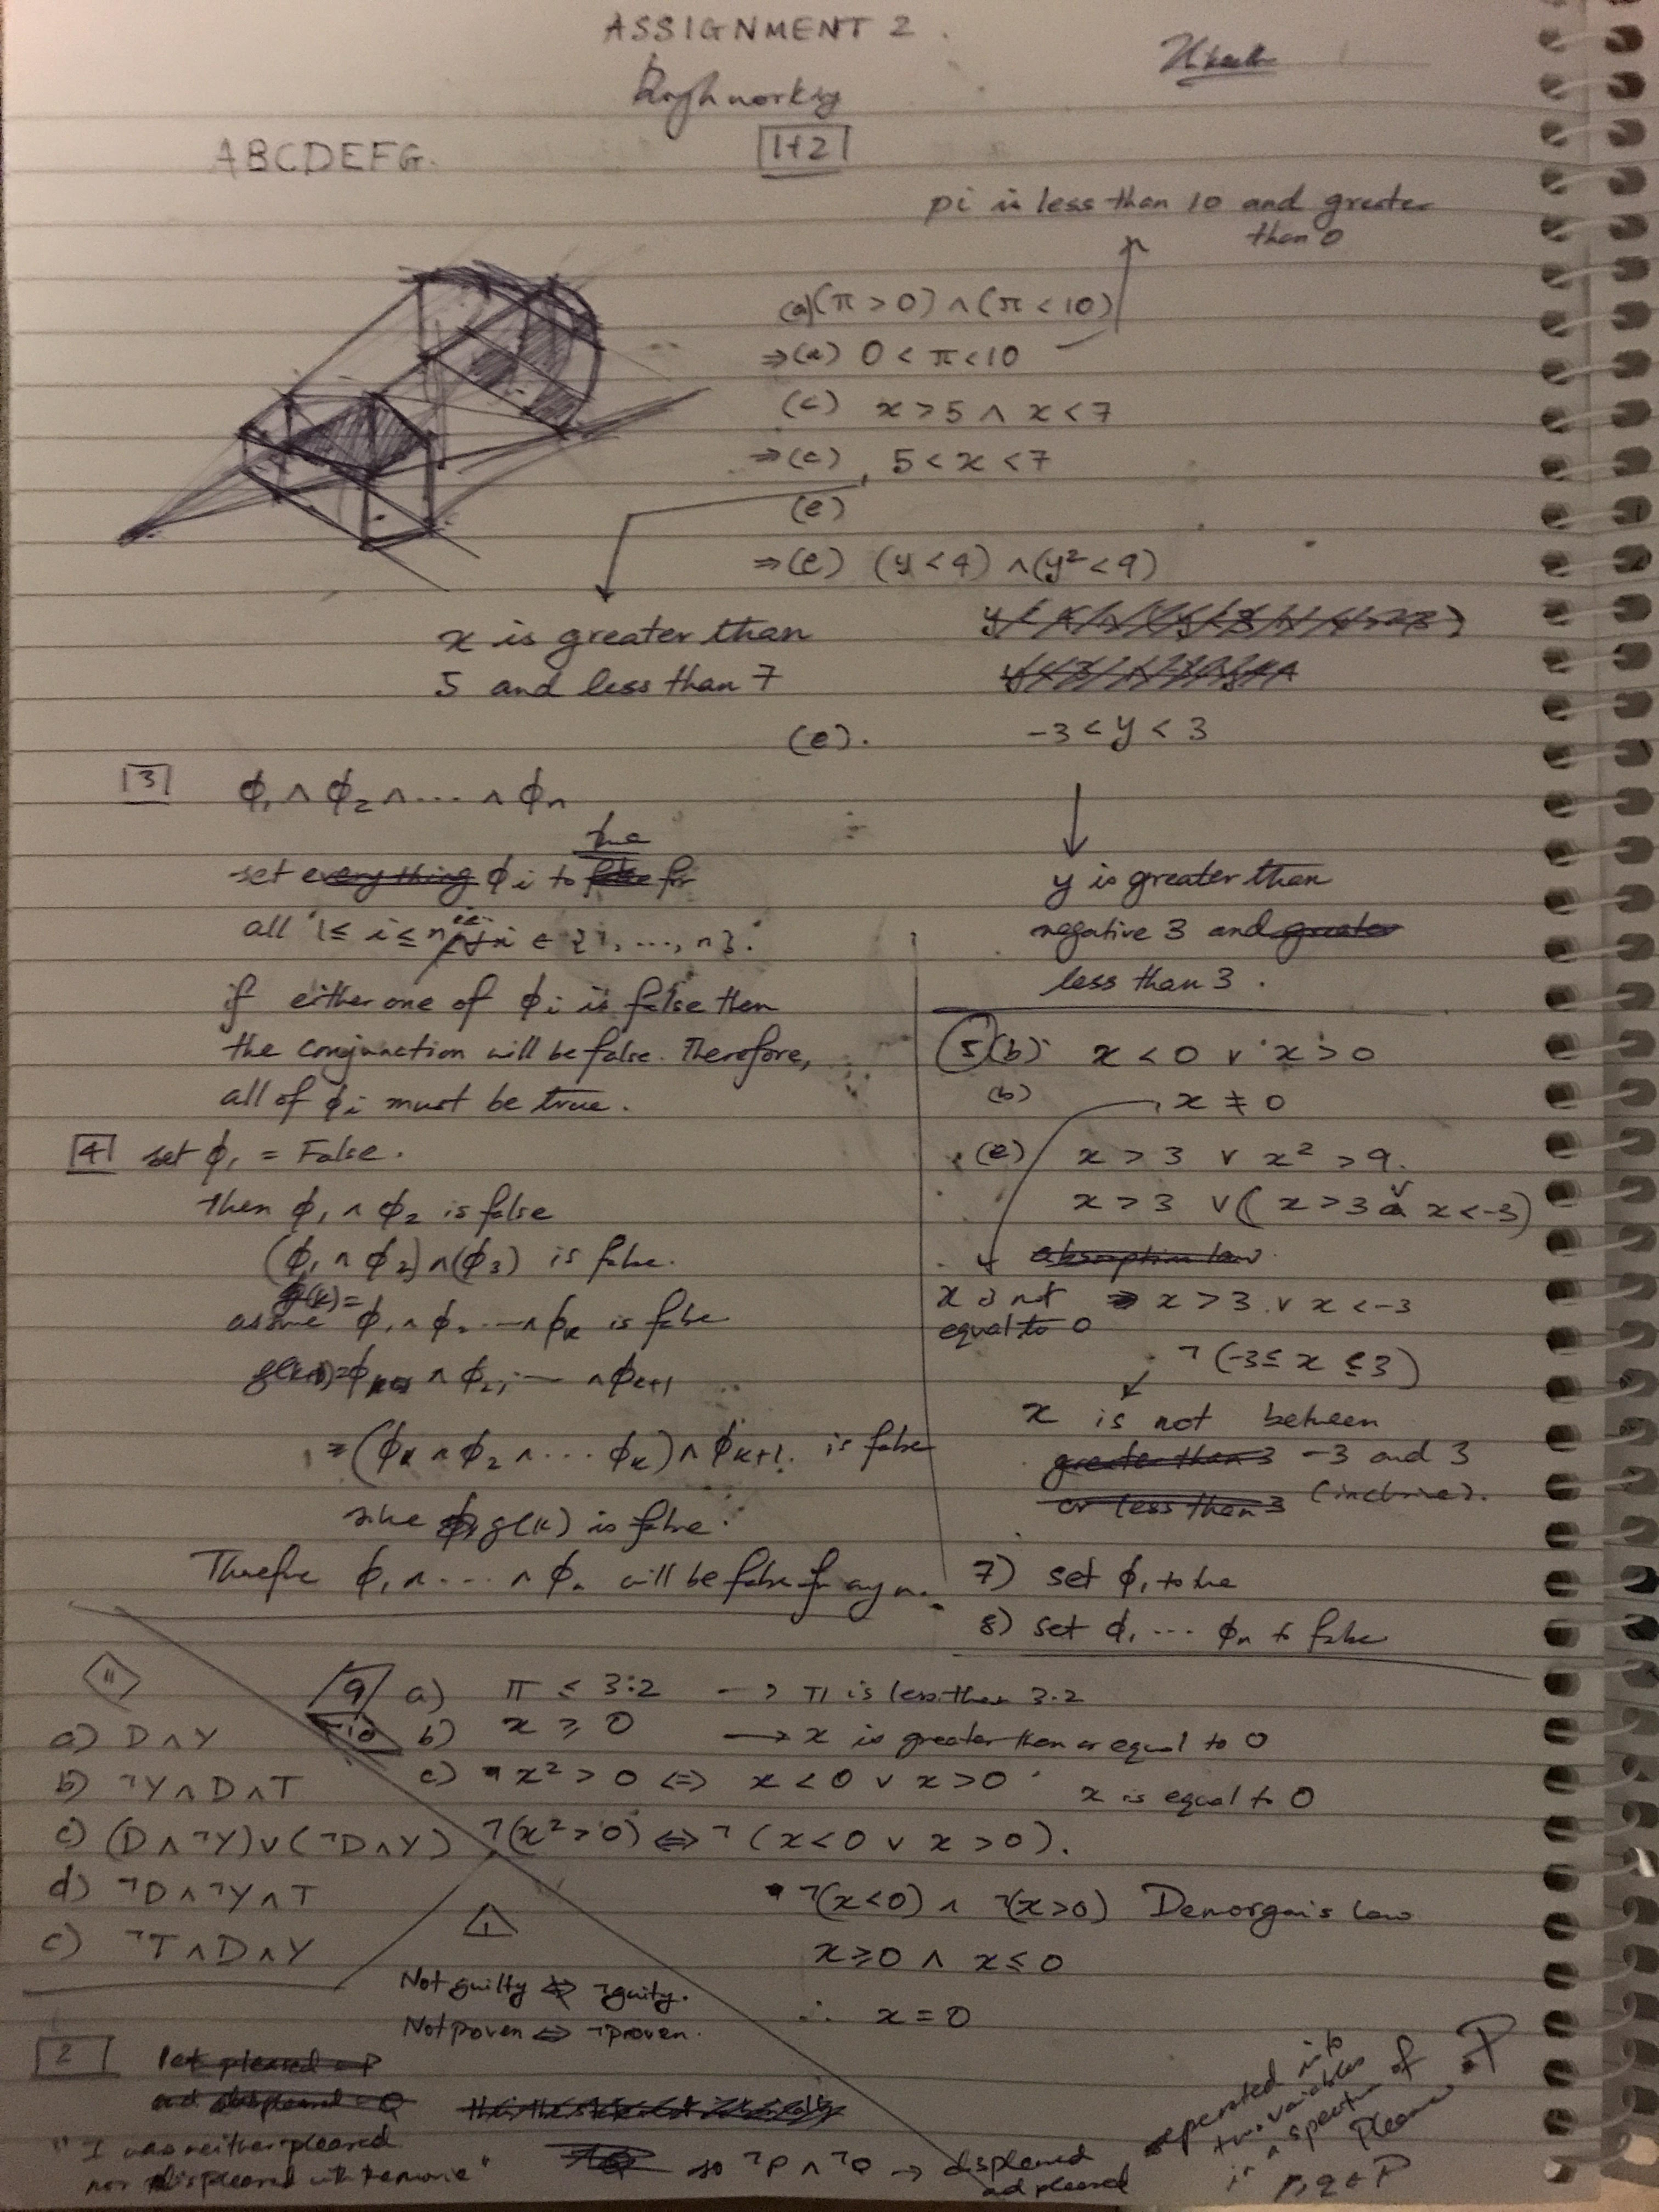 ASSIGNMENT 2.
Rough working
ABCDEFG.
1+2
pi is less than 10 and greater
than 0
(a) (π > 0) ∧ (π < 10)
⇒ (a) 0 < π < 10
(c) x > 5 ∧ x < 7
⇒ (c) 5 < x < 7
(e)
⇒ (e) (y < 4) ∧ (y² < 9)
x is greater than
5 and less than 7
(e). -3 < y < 3
y is greater than
negative 3 and greater
less than 3.
3 ϕ₁ ∧ ϕ₂ ∧ .... ∧ ϕn
true
set everything ϕi to false for
all 1 ≤ i ≤ n i ∈ {1, ..., n}.
if either one of ϕi is false then
the conjunction will be false. Therefore,
all of ϕi must be true.
4 set ϕ₁ = False.
Then ϕ₁ ∧ ϕ₂ is false
(ϕ₁ ∧ ϕ₂) ∧ (ϕ₃) is false.
g(k) =
assume ϕ₁ ∧ ϕ₂ ... ∧ ϕk is false
g(k+1) = ∧ ϕ₂, ... ∧ ϕk+1
= (ϕ ∧ ϕ₂ ∧ ... ϕk) ∧ ϕk+1. is false
since g(k) is false.
Therefore ϕ₁ ∧ .... ∧ ϕn will be false for any n.
5 (b) x < 0 ∨ x > 0
(b) x ≠ 0
x is not
equal to 0
(e) x > 3 ∨ x² > 9.
x > 3 ∨ (x > 3 ∨ x < -3)
absorption law
⇒ x > 3 ∨ x < -3
¬(-3 ≤ x ≤ 3)
x is not between
greater than 3 -3 and 3
or less than 3 (inclusive).
7) set ϕ₁ to true
8) set ϕ₁ ... ϕn to false
9 a) π ≤ 3.2 → π is less than 3.2
10 b) x ≥ 0 → x is greater than or equal to 0
c) x² > 0 ⇔ x < 0 ∨ x > 0
x is equal to 0
¬(x² > 0) ⇔ ¬(x < 0 ∨ x > 0).
¬(x<0) ∧ ¬(x>0) Demorgan's law
x ≥ 0 ∧ x ≤ 0
∴ x = 0
11
a) D ∧ Y
b) ¬Y ∧ D ∧ T
c) (D ∧ ¬Y) ∨ (¬D ∧ Y)
d) ¬D ∧ ¬Y ∧ T
e) ¬T ∧ D ∧ Y
1
Not guilty ⇎ ¬guity.
Not proven ⇔ ¬proven.
2 let pleased = P
and displeased = Q
"I was neither pleased
nor displeased with the movie"
so ¬P ∧ ¬Q → displeased
ad pleased
seperated into
two variables
in a spectrum of
Please P
p, q ∈ P